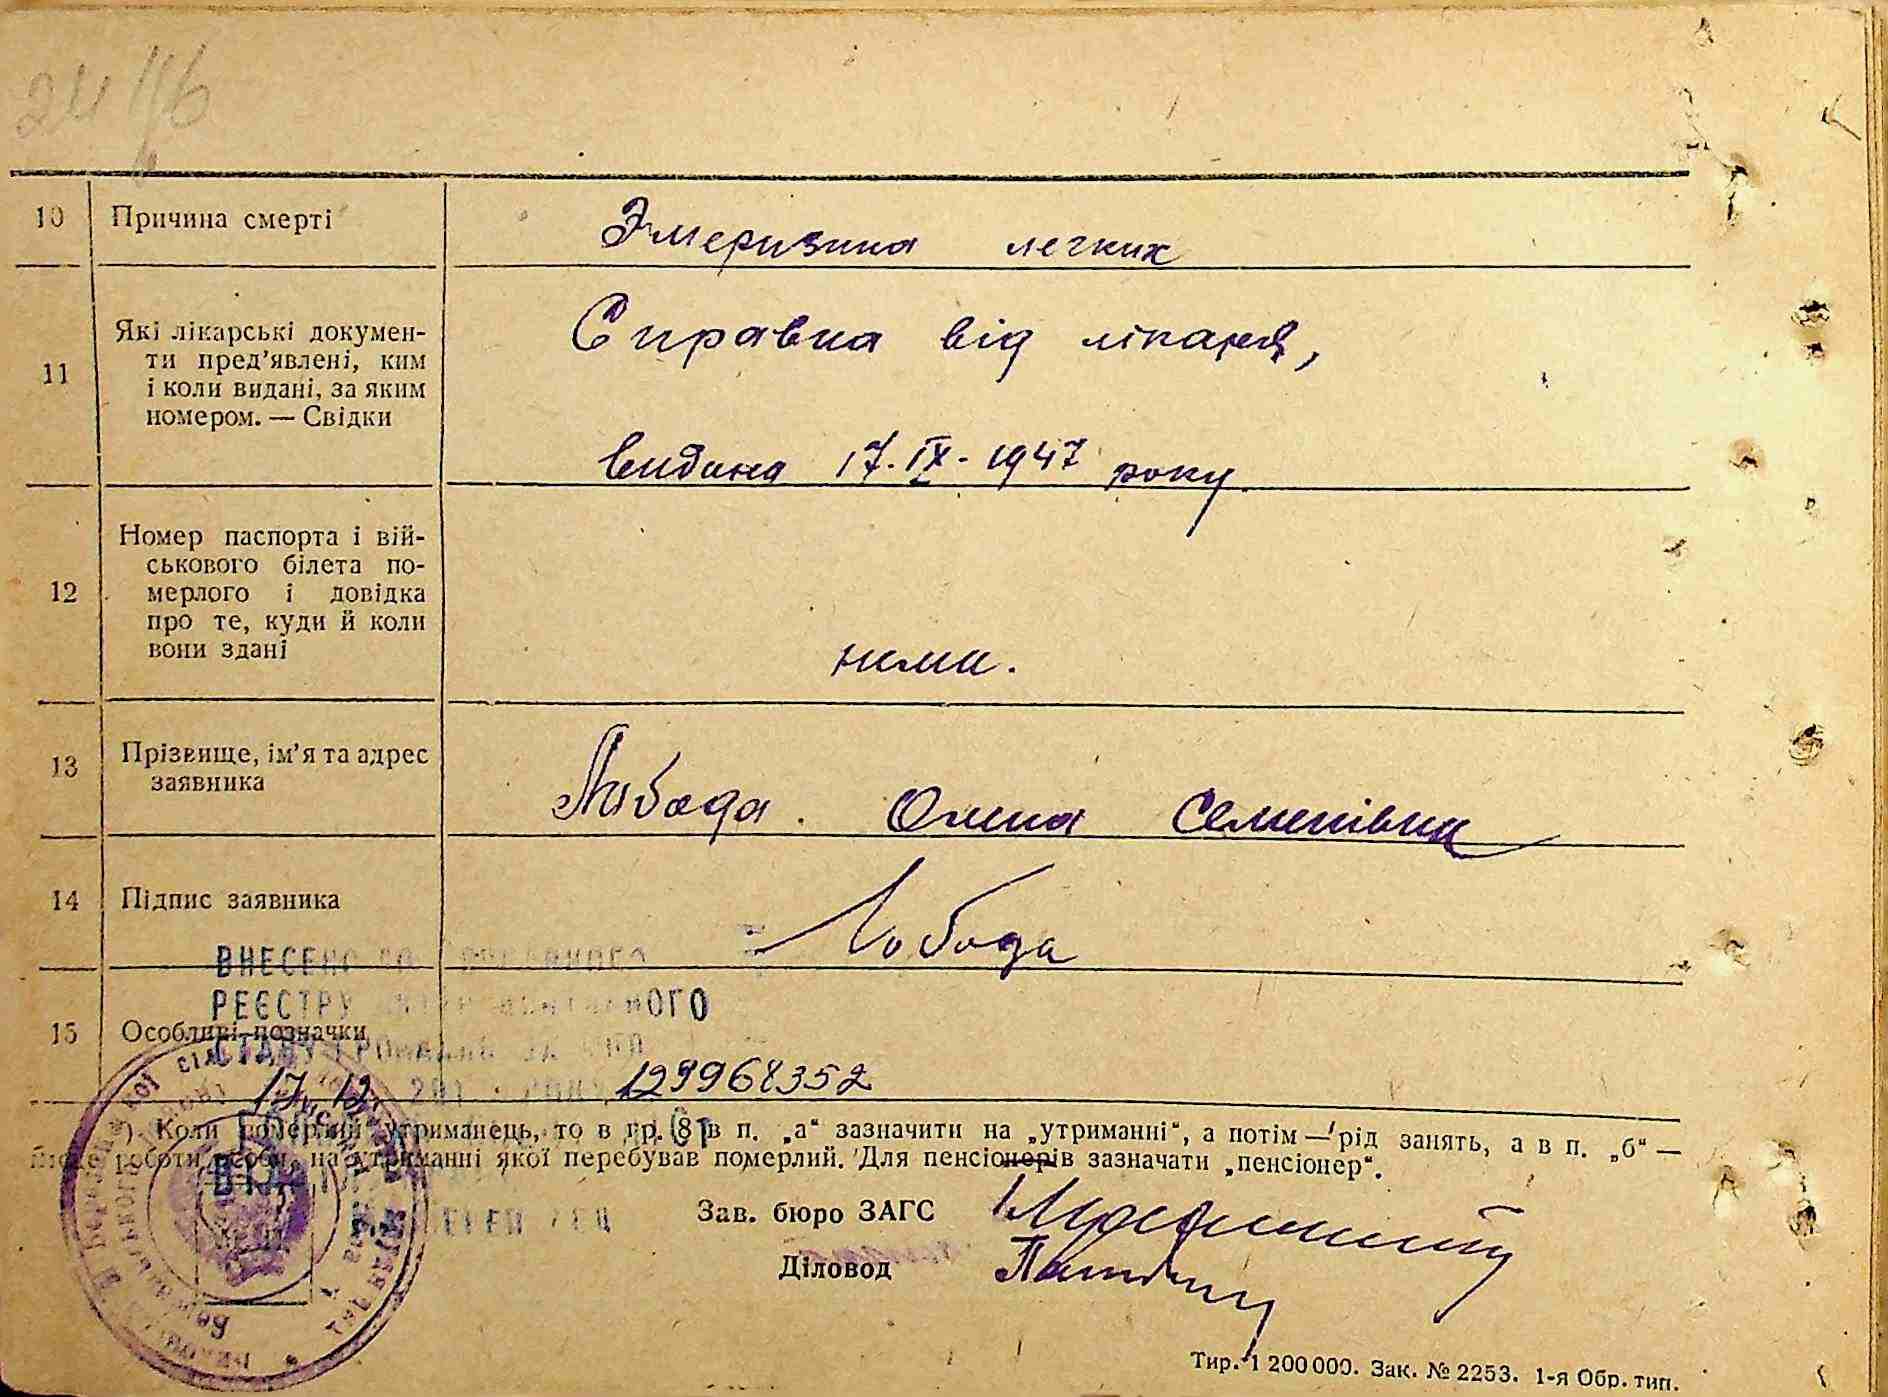 10 Причина смерті Эмеризина легких
11 Які лікарські докумен-
ти пред’явлені, ким
і коли видані, за яким
номером. — Свідки
Справка від лікаря,
видана 17-IX-1947 року
12 Номер паспорта і вій-
ськового білета по-
мерлого і довідка
про те, куди й коли
вони здані
нема.
13 Прізвище, ім’я та адрес
заявника
Лобода. Олена Семенівна
14 Підпис заявника Лобода
ВНЕСЕНО ДО
РЕЄСТРУ
СТАНУ ГРОМАДЯН ЗА
15 Особливі позначки
17 12 129968352
). Коли померлий утриманець, то в гр. 8 в п. „а“ зазначити на „утриманні“, а потім — рід занять, а в п. „б“ —
роботи особи, на утриманні якої перебував померлий. Для пенсіонерів зазначати „пенсіонер“.
Зав. бюро ЗАГС
Діловод
Тир. 1 200 000. Зак. № 2253. 1-я Обр. тип.